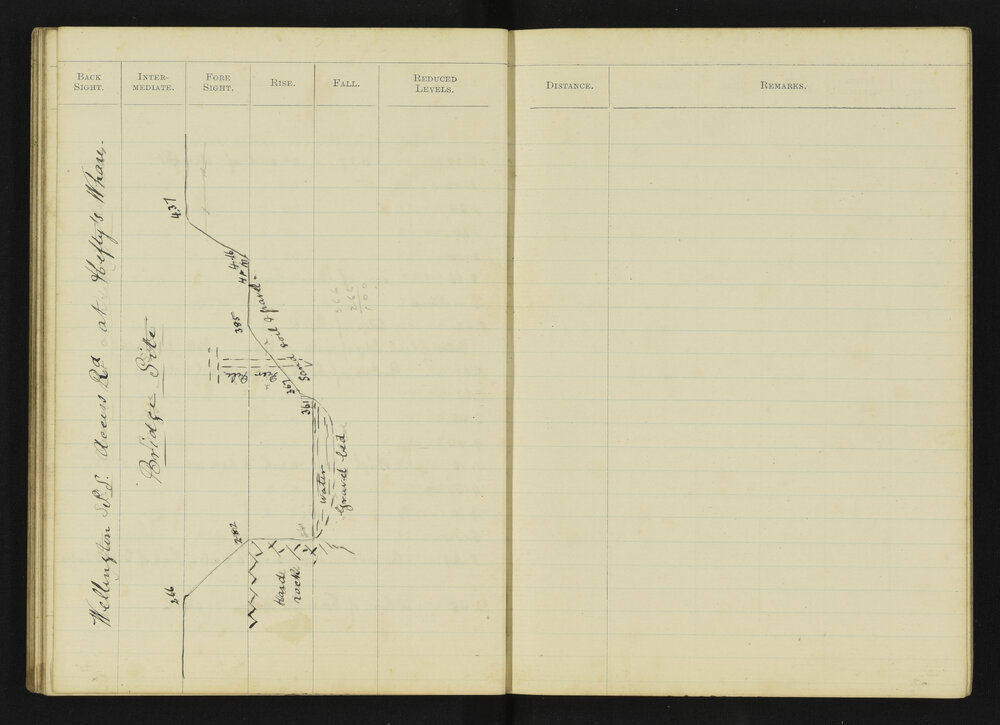 BACK SIGHT.
INTER- MEDIATE.
FORE SIGHT.
RISE.
FALL.
REDUCED LEVELS.
DISTANCE.
REMARKS.
Wellington S.S. Access Rd at Hefty's Whare.
Bridge Site
437
416
385
soil & gravel
Sand
367
361
water
Gravel bed
282
Hard
rock
266
366
266
100